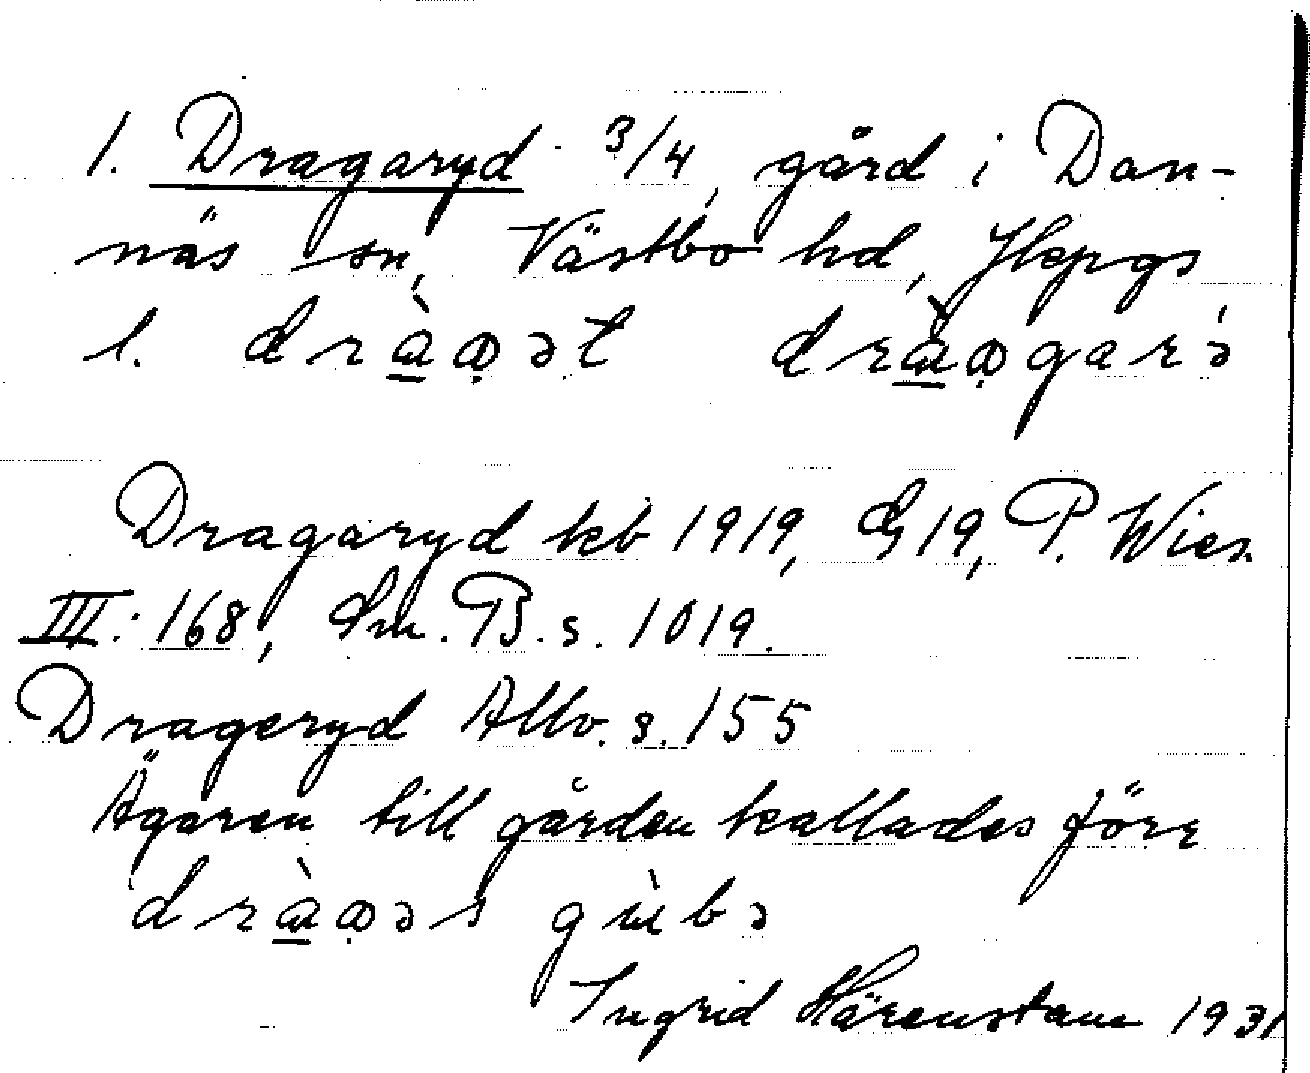 1. Dragaryd 3/4, gård i Dan-
näs sn, Västbo hd, Jkpgs
l.
Dragaryd kb 1919, G 19, P. Wies.
III: 168, Sm. B. s. 1019.
Drageryd Allv. s. 155
Ägaren till gården kallades förr
Ingrid Härenstam 1931